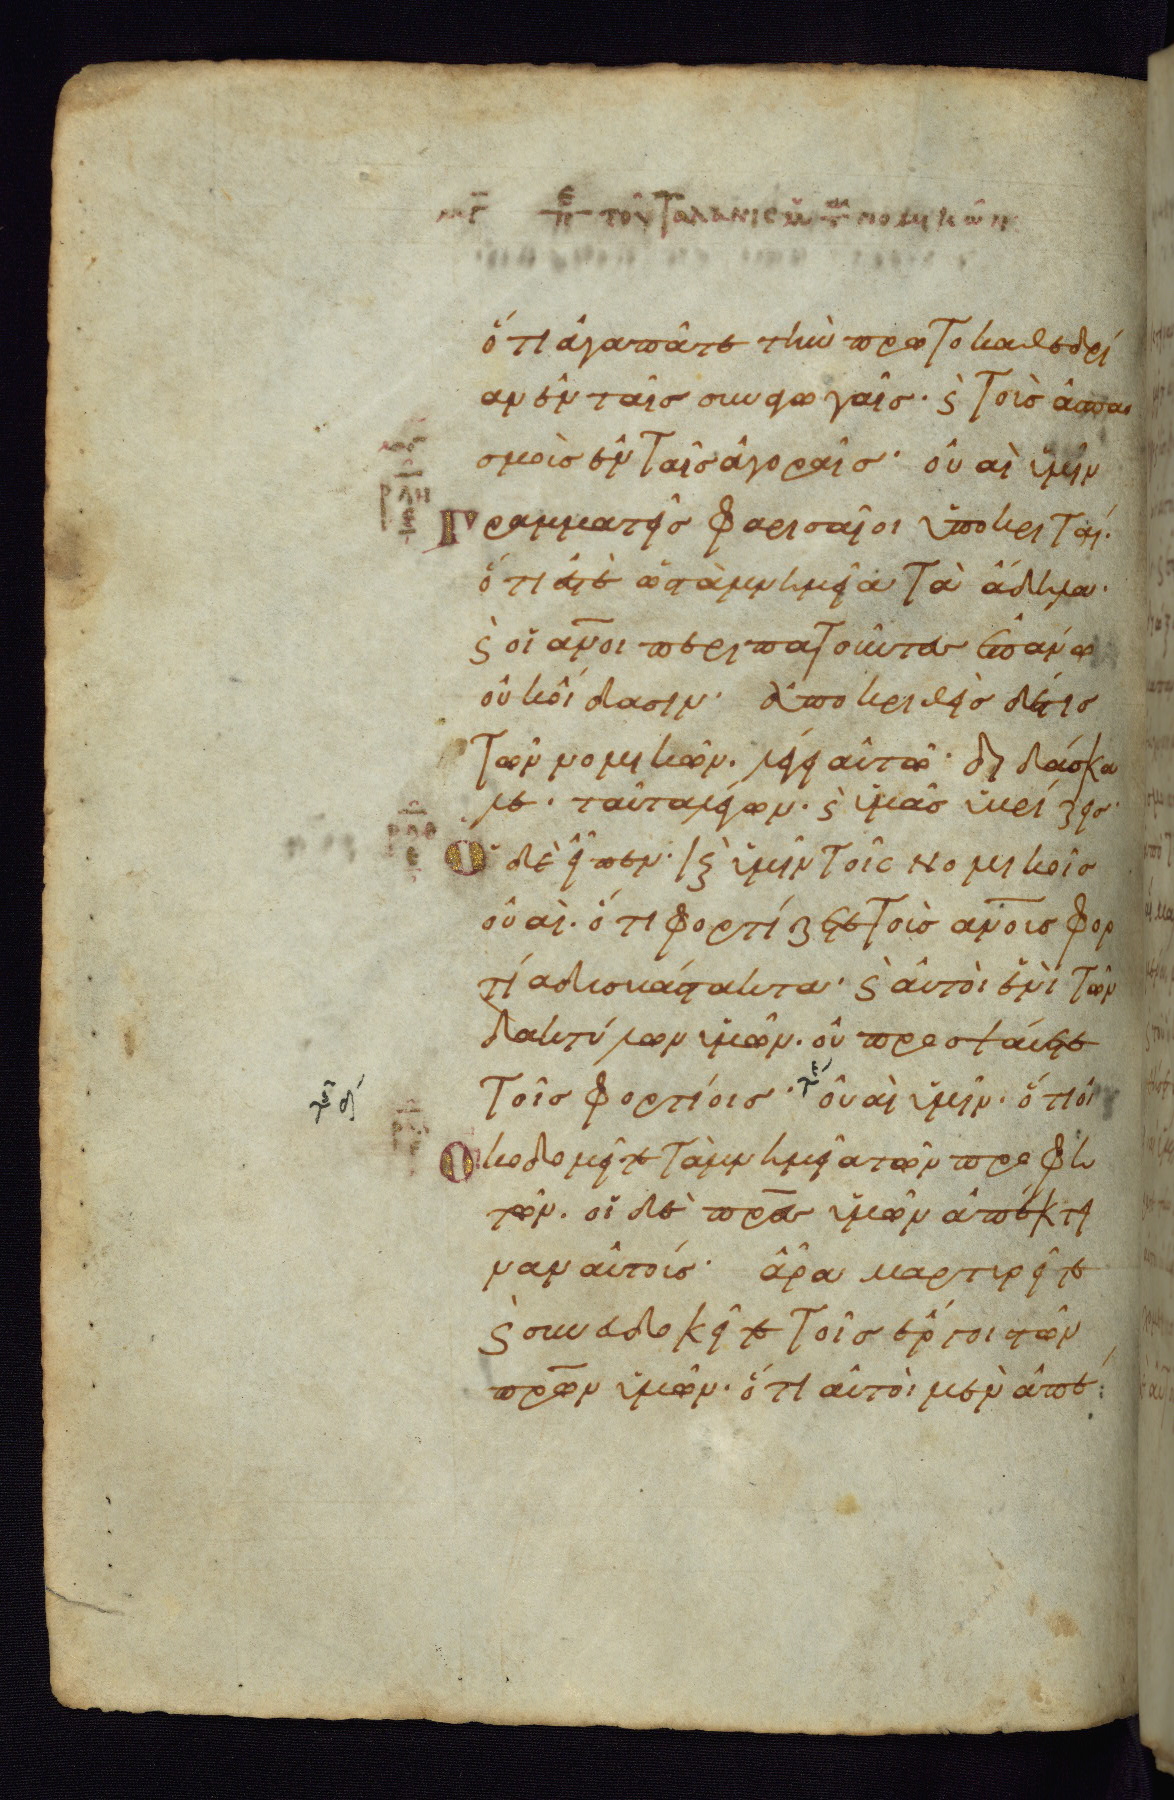 περὶ τοῦ ταλανισμοῦ τῶν νομικῶν
ὅτι ἀγαπᾶτε τὴν πρωτοκαθεδρί
αν ἐν ταῖς συναγωγαῖς· ϗ τοὺς ἀσπασ
μοὺς ἐν ταῖς ἀγοραῖς· οὐαὶ ὑμῖν
Γραμματεῖς φαρισαῖοι ὑποκριταί·
ὅτι ἐστὲ ὡς τὰ μνημεῖα τὰ ἄδηλα·
ϗ οἱ ἄνοι περιπατοῦντες ἐπάνω
οὐκ οἴδασιν· ἀποκριθεὶς δέ τις
τῶν νομικῶν· λέγει αὐτῶ· διδάσκα
λε· ταῦτα λέγων· ϗ ὑμᾶς ὑβρίζεις·
Ὁ δὲ εἶπεν· ϗ ὑμῖν τοῖς νομικοῖς
οὐαί· ὅτι φορτίζετε τοὺς ἀνους φορ
τία δυσβάστακτα· ϗ αὐτοὶ ἑνὶ τῶν
δακτύλων ὑμῶν· οὐ προσψαύετε
τοῖς φορτίοις· οὐαὶ ὑμῖν· ὅτι οἰ
Οκοδομεῖτε τὰ μνημεῖα τῶν προφη
τῶν· οἱ δὲ πρες ὑμῶν ἀπέκτει
ναν αὐτούς· ἄρα μαρτυρεῖτε
ϗ συνευδοκεῖτε τοῖς ἔργοις τῶν
πρων ὑμῶν· ὅτι αὐτοὶ μὲν ἀπέ